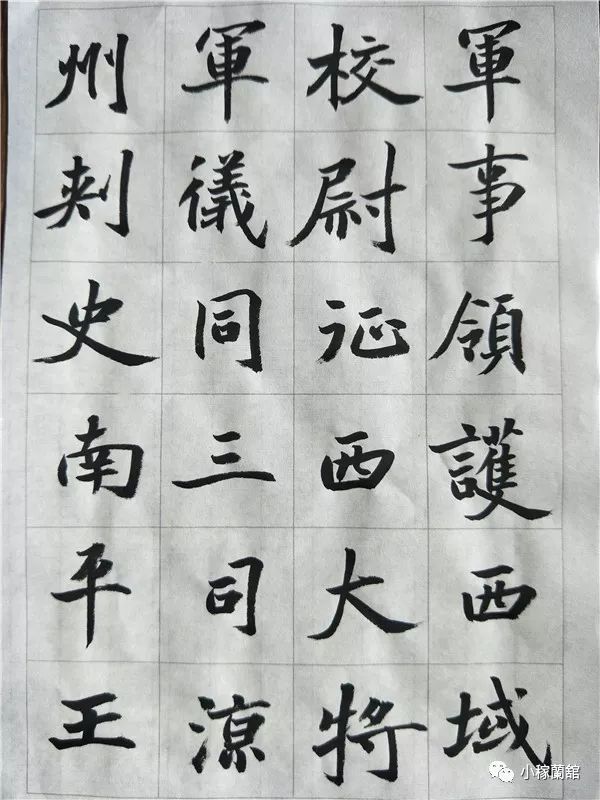 軍事領護西域
校尉征西大将
軍儀同三司涼
州刾史南平王
小稼蘭舘